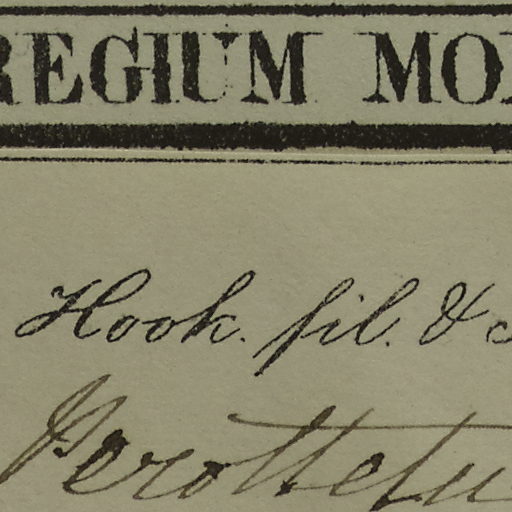 REGIUM MO
Hook. fil. &
Perottetu